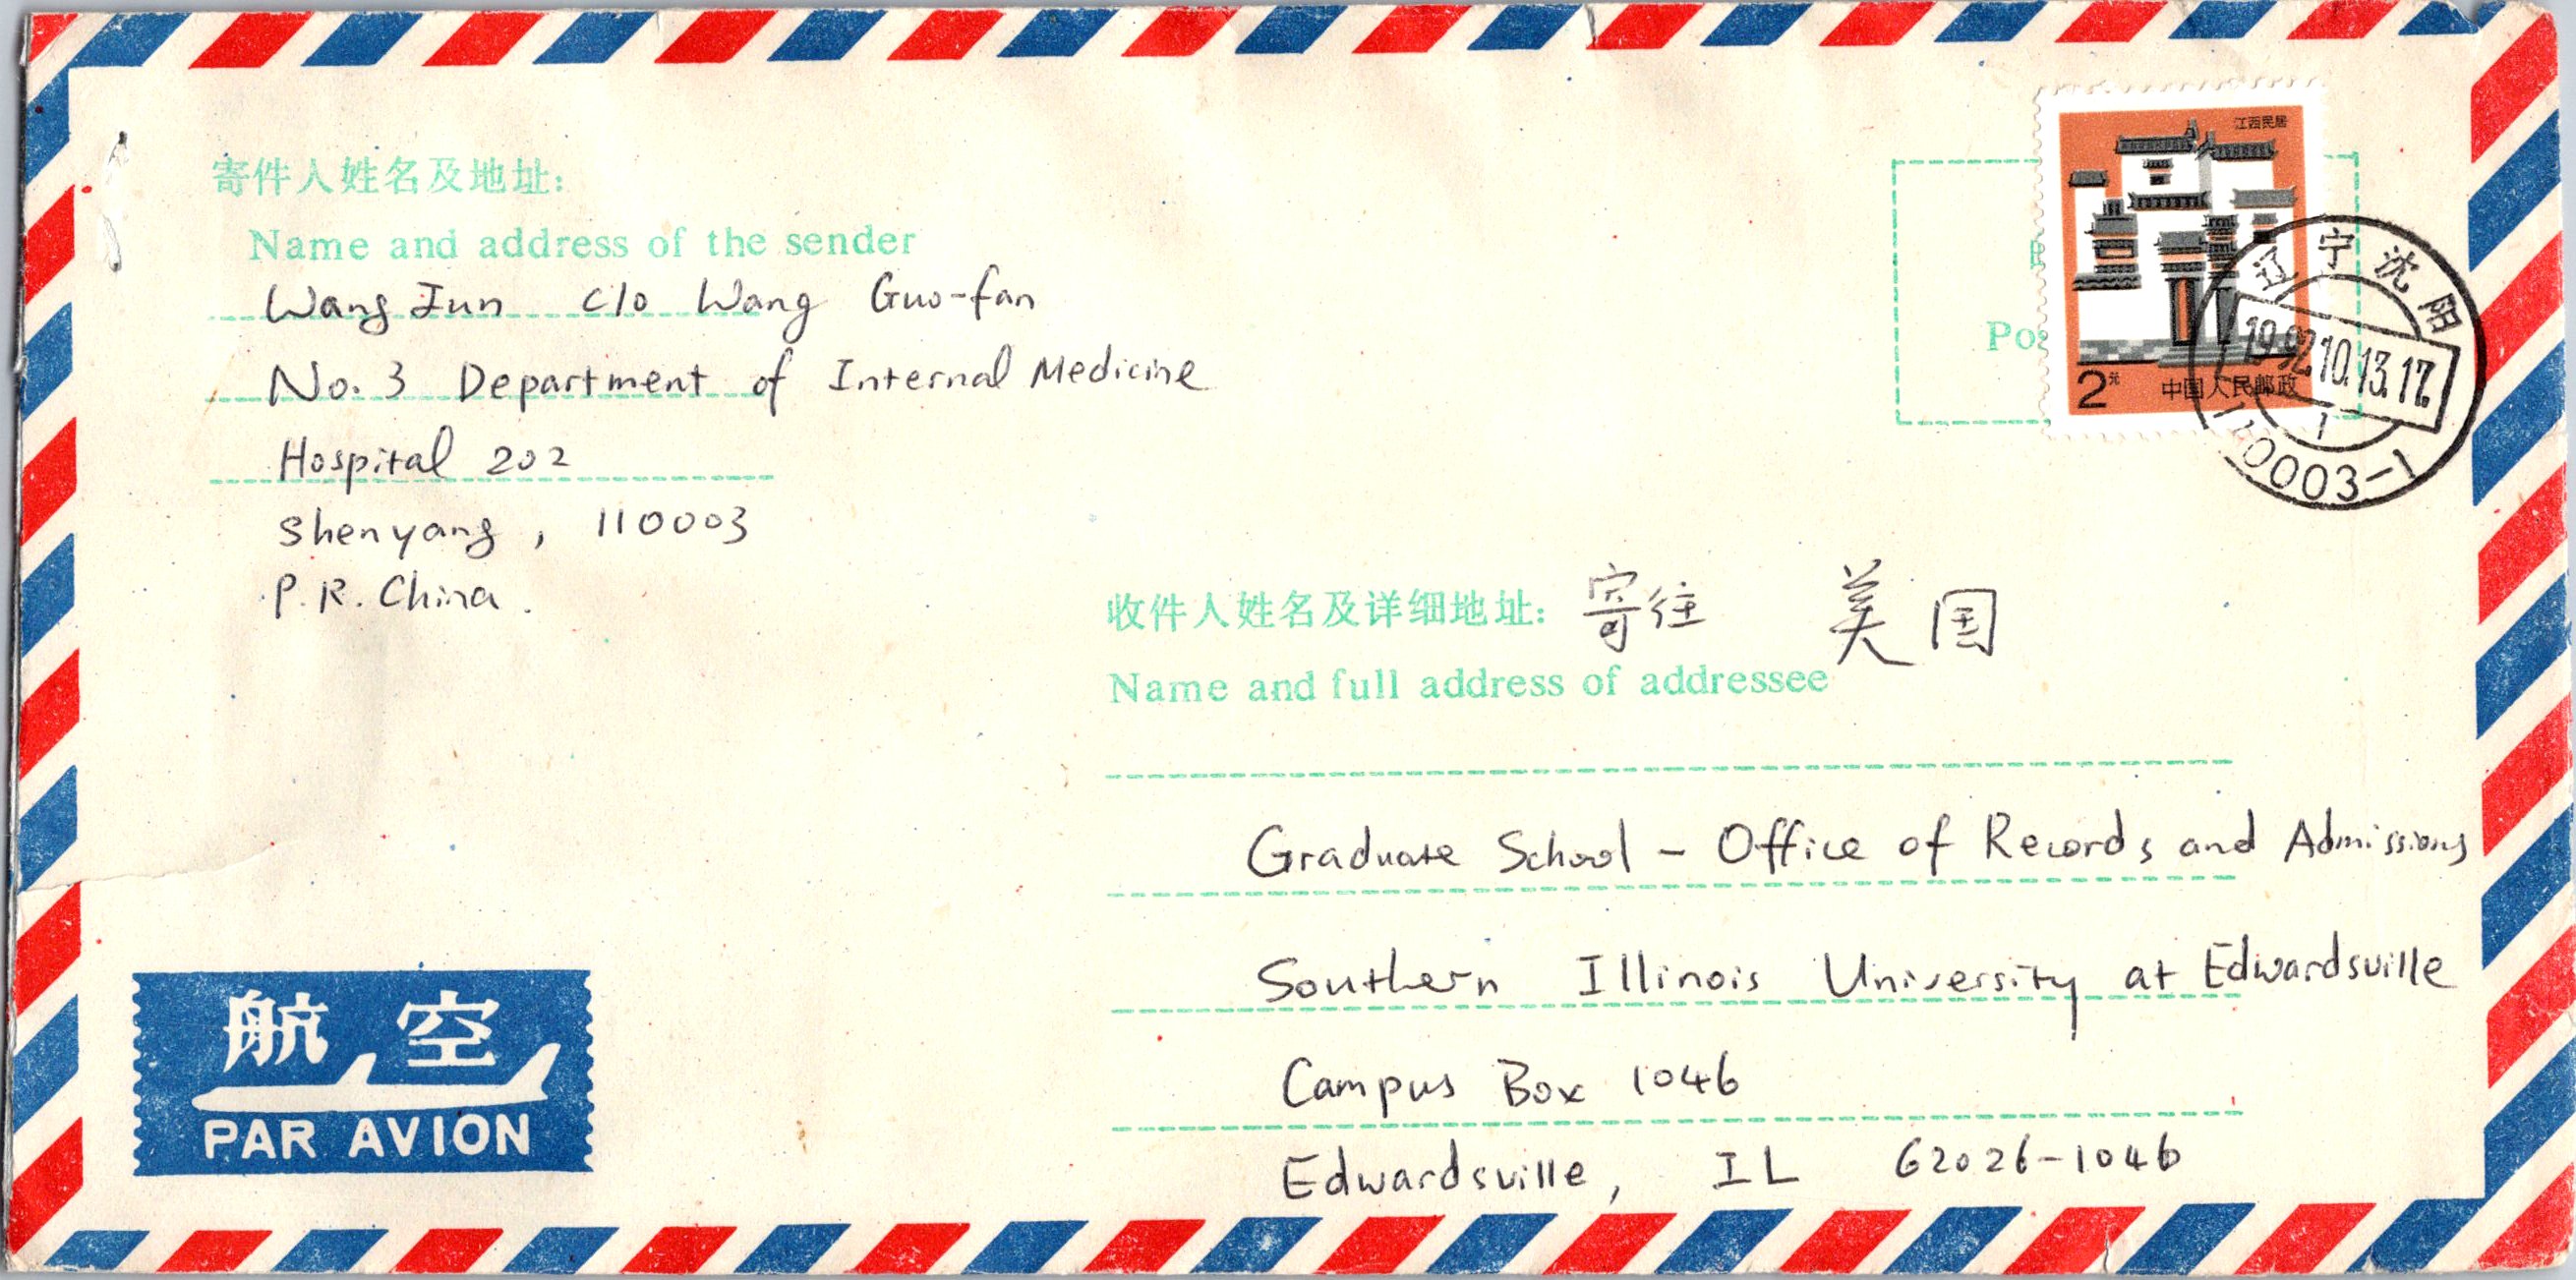 寄件人姓名及地址:
Name and address of the sender
Wang Jun c/o Wang Guo-fan
No. 3 Department of Internal Medicine
Hospital 202
Shenyang, 110003
P. R. China.
江西民居
2元 中国人民邮政
辽宁沈阳
1992.10.13.17.
1
110003-1
收件人姓名及详细地址: 寄往 美国
Name and full address of addressee
Graduate School - Office of Records and Admissions
Southern Illinois University at Edwardsville
Campus Box 1046
Edwardsville, IL 62026-1046
航空
PAR AVION